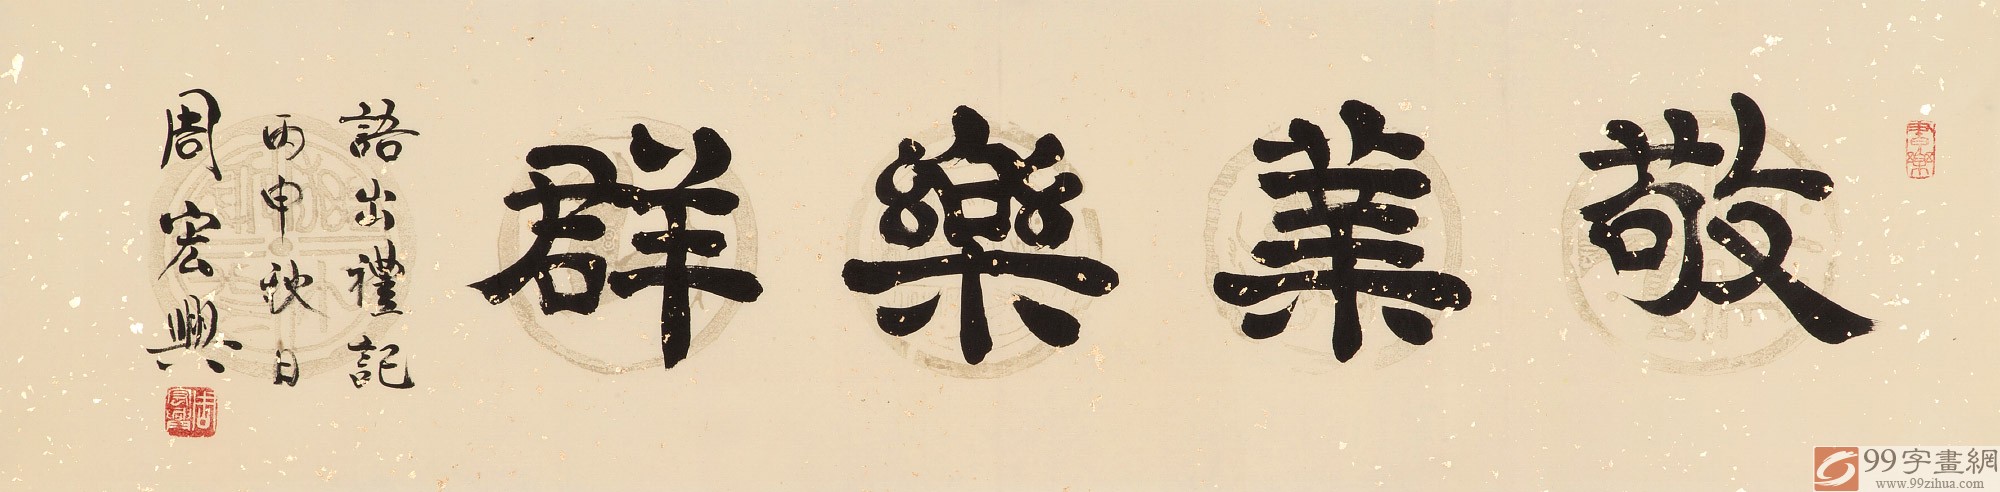 敬業樂群
語出禮記
丙申秋日
周宏興
99字畫網
www.99zihua.com